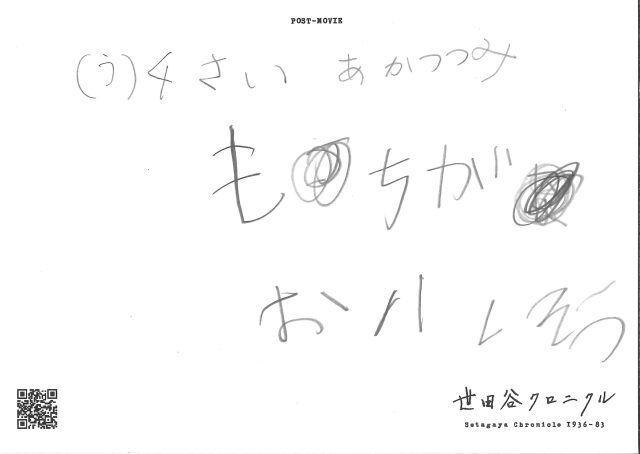 POST-MOVIE
(う)4さい あかつつみ
もちが
おいしそう
世田谷クロニクル
Setagaya Chronicle 1936-83